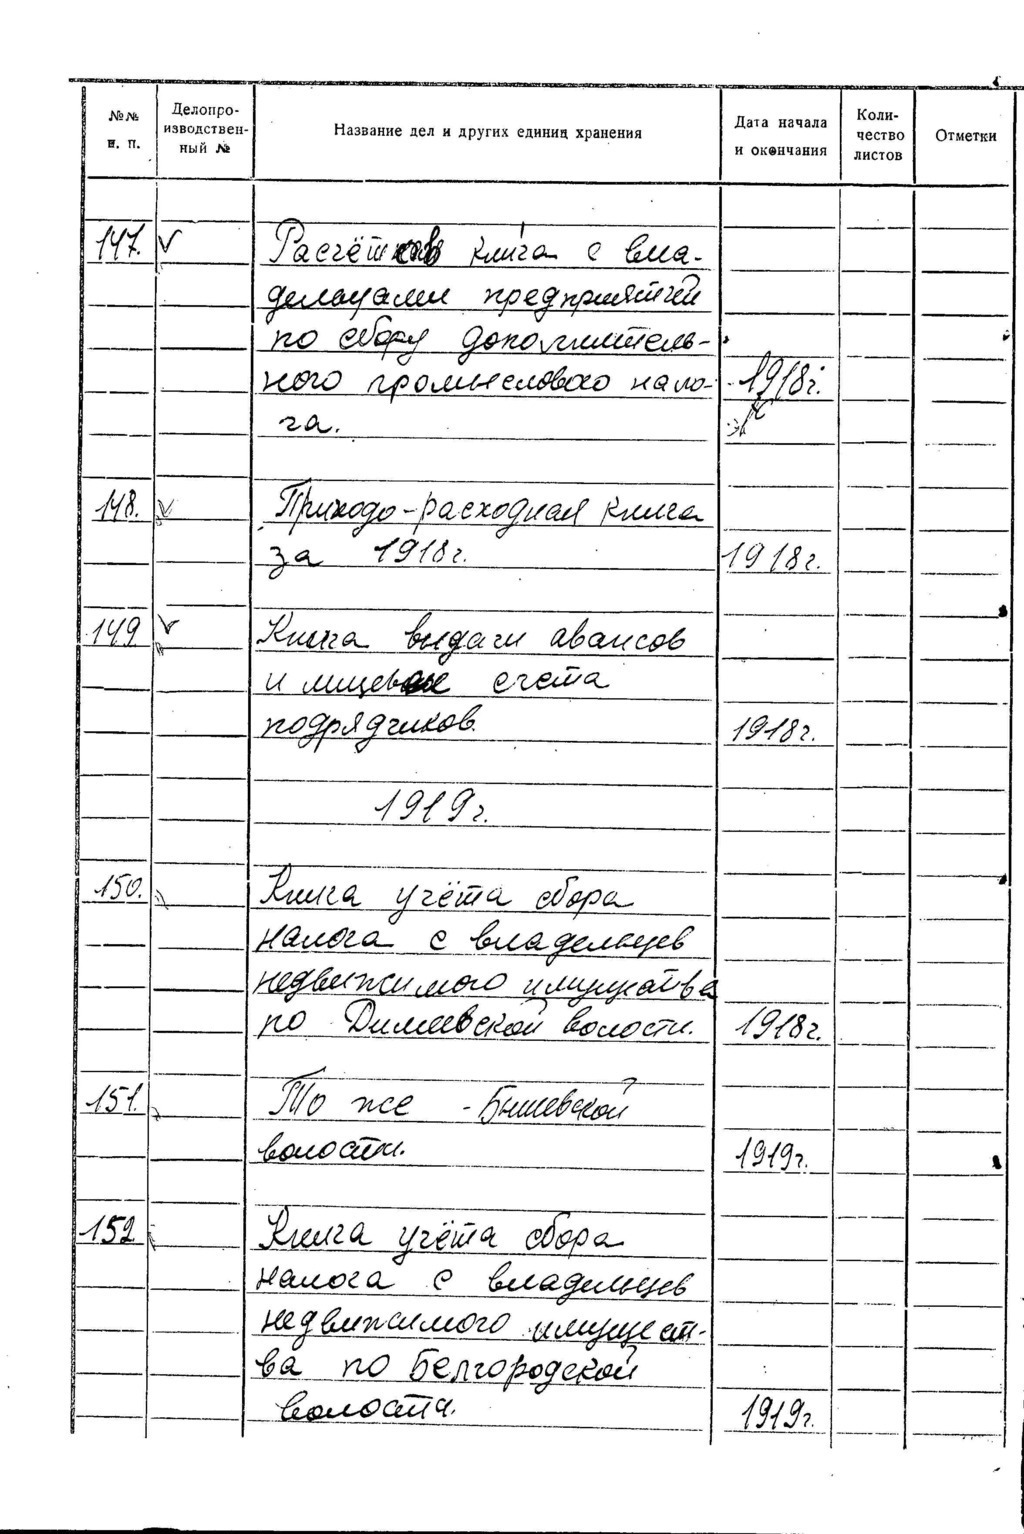 №№ п. п.
Делопро-
изводствен-
ный №
Название дел и других единиц хранения
Дата начала
и окончания
Коли-
чество
листов
Отметки
147. v Расчётная книга с вла-
дельцами предприятий
по сбору дополнитель-
ного промыслового нало- 1918г.
га.
148. v Приходо-расходная книга
за 1918г. 1918г.
149 v Книга выдачи авансов
и лицевые счета
подрядчиков. 1918г.
1919г.
150. Книга учёта сбора
налога с владельцев
недвижимого имущества
по Димеевской волости. 1918г.
151. То же - Бышевской
волости. 1919г.
152 Книга учёта сбора
налога с владельцев
недвижимого имущест-
ва по Белгородской
волости. 1919г.